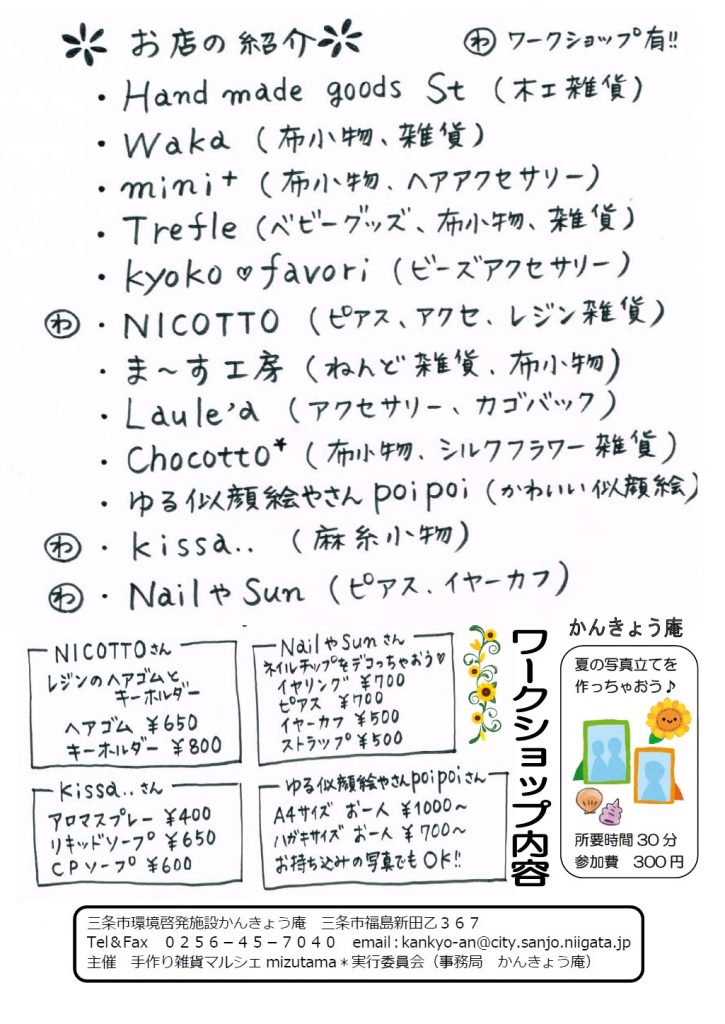 お店の紹介
㋻ ワークショップ有!!
・Hand made goods St (木工雑貨)
・Waka (布小物、雑貨)
・mini⁺ (布小物、ヘアアクセサリー)
・Trefle (ベビーグッズ、布小物、雑貨)
・kyoko♡favori (ビーズアクセサリー)
㋻・NICOTTO (ピアス、アクセ、レジン雑貨)
・ま〜す工房 (ねんど雑貨、布小物)
・Laule'a (アクセサリー、カゴバック)
・Chocotto* (布小物、シルクフラワー雑貨)
・ゆる似顔絵やさんpoipoi (かわいい似顔絵)
㋻・kissa.. (麻糸小物)
㋻・NailやSun (ピアス、イヤーカフ)
NICOTTOさん
レジンのヘアゴムと
キーホルダー
ヘアゴム ¥650
キーホルダー ¥800
NailやSunさん
ネイルチップをデコっちゃおう♡
イヤリング ¥700
ピアス ¥700
イヤーカフ ¥500
ストラップ ¥500
kissa..さん
アロマスプレー ¥400
リキッドソープ ¥650
CPソープ ¥600
ゆる似顔絵やさんpoipoiさん
A4サイズ お一人 ¥1000〜
ハガキサイズ お一人 ¥700〜
お持ち込みの写真でもOK!!
ワークショップ内容
かんきょう庵
夏の写真立てを
作っちゃおう♪
所要時間30分
参加費 300円
三条市環境啓発施設かんきょう庵 三条市福島新田乙367
Tel&Fax 0256-45-7040 email:kankyo-an@city.sanjo.niigata.jp
主催 手作り雑貨マルシェ mizutama*実行委員会(事務局 かんきょう庵)